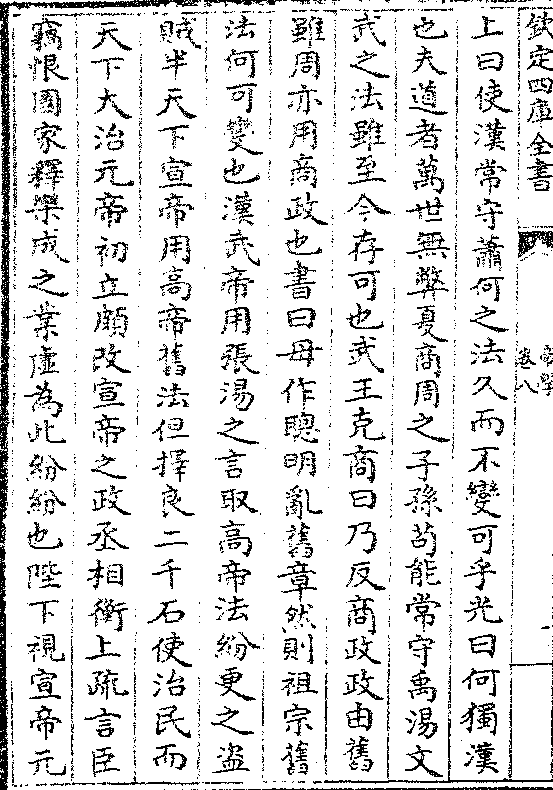 欽定四庫全書
帝學
卷八
上曰使漢常守蕭何之法久而不變可乎光曰何獨漢
也夫道者萬世無弊夏商周之子孫苟能常守禹湯文
武之法雖至今存可也武王克商曰乃反商政政由舊
雖周亦用商政也書曰毋作聰明亂舊章然則祖宗舊
法何可變也漢武帝用張湯之言取高帝法紛更之盗
賊半天下宣帝用高帝舊法但擇良二千石使治民而
天下大治元帝初立頗改宣帝之政丞相衡上疏言臣
竊恨國家釋樂成之業虛為此紛紛也陛下視宣帝元